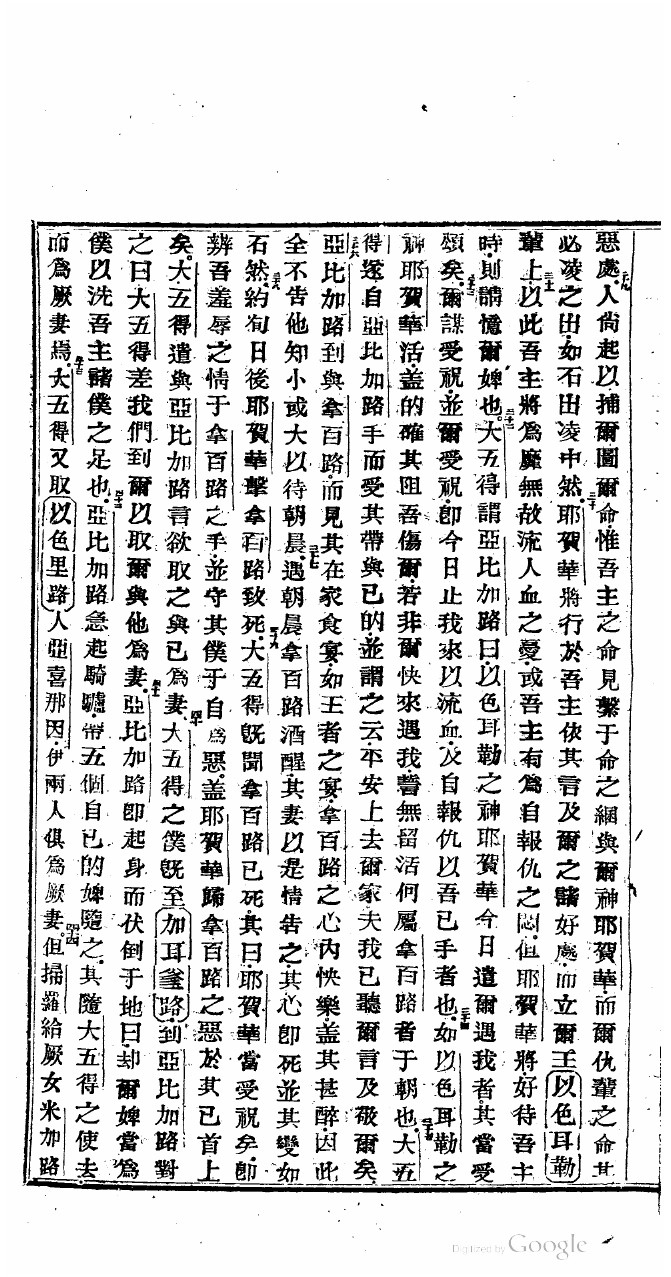 惡處。二九人尚起以捕爾圖爾命惟吾主之命見繫于命之綑與爾神耶賀華而爾仇輩之命其
必凌之出如石出凌中然。三十耶賀華將行於吾主依其言及爾之諸好處而立爾王以色耳勒
輩上三一以此吾主將爲魔無故流人血之憂或吾主有爲自報仇之悶但耶賀華將好待吾主
時則謂憶爾婢也。三二大五得謂亞比加路曰以色耳勒之神耶賀華今日遣爾遇我者其當受
頌矣。三三爾謀受祝並爾受祝卽今日止我來以流血及自報仇以吾已手者也。三四如以色耳勒之
神耶賀華活盖的確其阻吾傷爾若非爾快來遇我嘗無留活何屬拿百路者于朝也。三五大五
得遂自亞比加路手而受其帶與已的並謂之云平安上去爾家夫我已聽爾言及敬爾矣
三六亞比加路到與拿百路而見其在家食宴如王者之宴拿百路之心內快樂盖其甚醉因此
全不告他知小或大以待朝晨。三七遇朝晨拿百路酒醒其妻以是情告之其心卽死並其變如
石然。三八約旬日後耶賀華擊拿百路致死。三九大五得旣聞拿百路已死其曰耶賀華當受祝矣卽
辨吾羞辱之情于拿百路之手並守其僕于自爲惡盖耶賀華歸拿百路之惡於其已首上
矣。大五得遣與亞比加路言欲取之與已爲妻。四十大五得之僕旣至加耳釜路到亞比加路對
之曰大五得差我們到爾以取爾與他爲妻。四一亞比加路卽起身而伏倒于地曰却爾婢當爲
僕以洗吾主諸僕之足也。四二亞比加路急起騎驢帶五個自已的婢隨之其隨大五得之使去
而爲厥妻焉。四三大五得又取以色里路人亞喜那因伊兩人俱爲厥妻。四四但掃羅給厥女米加路
Digitized by Google